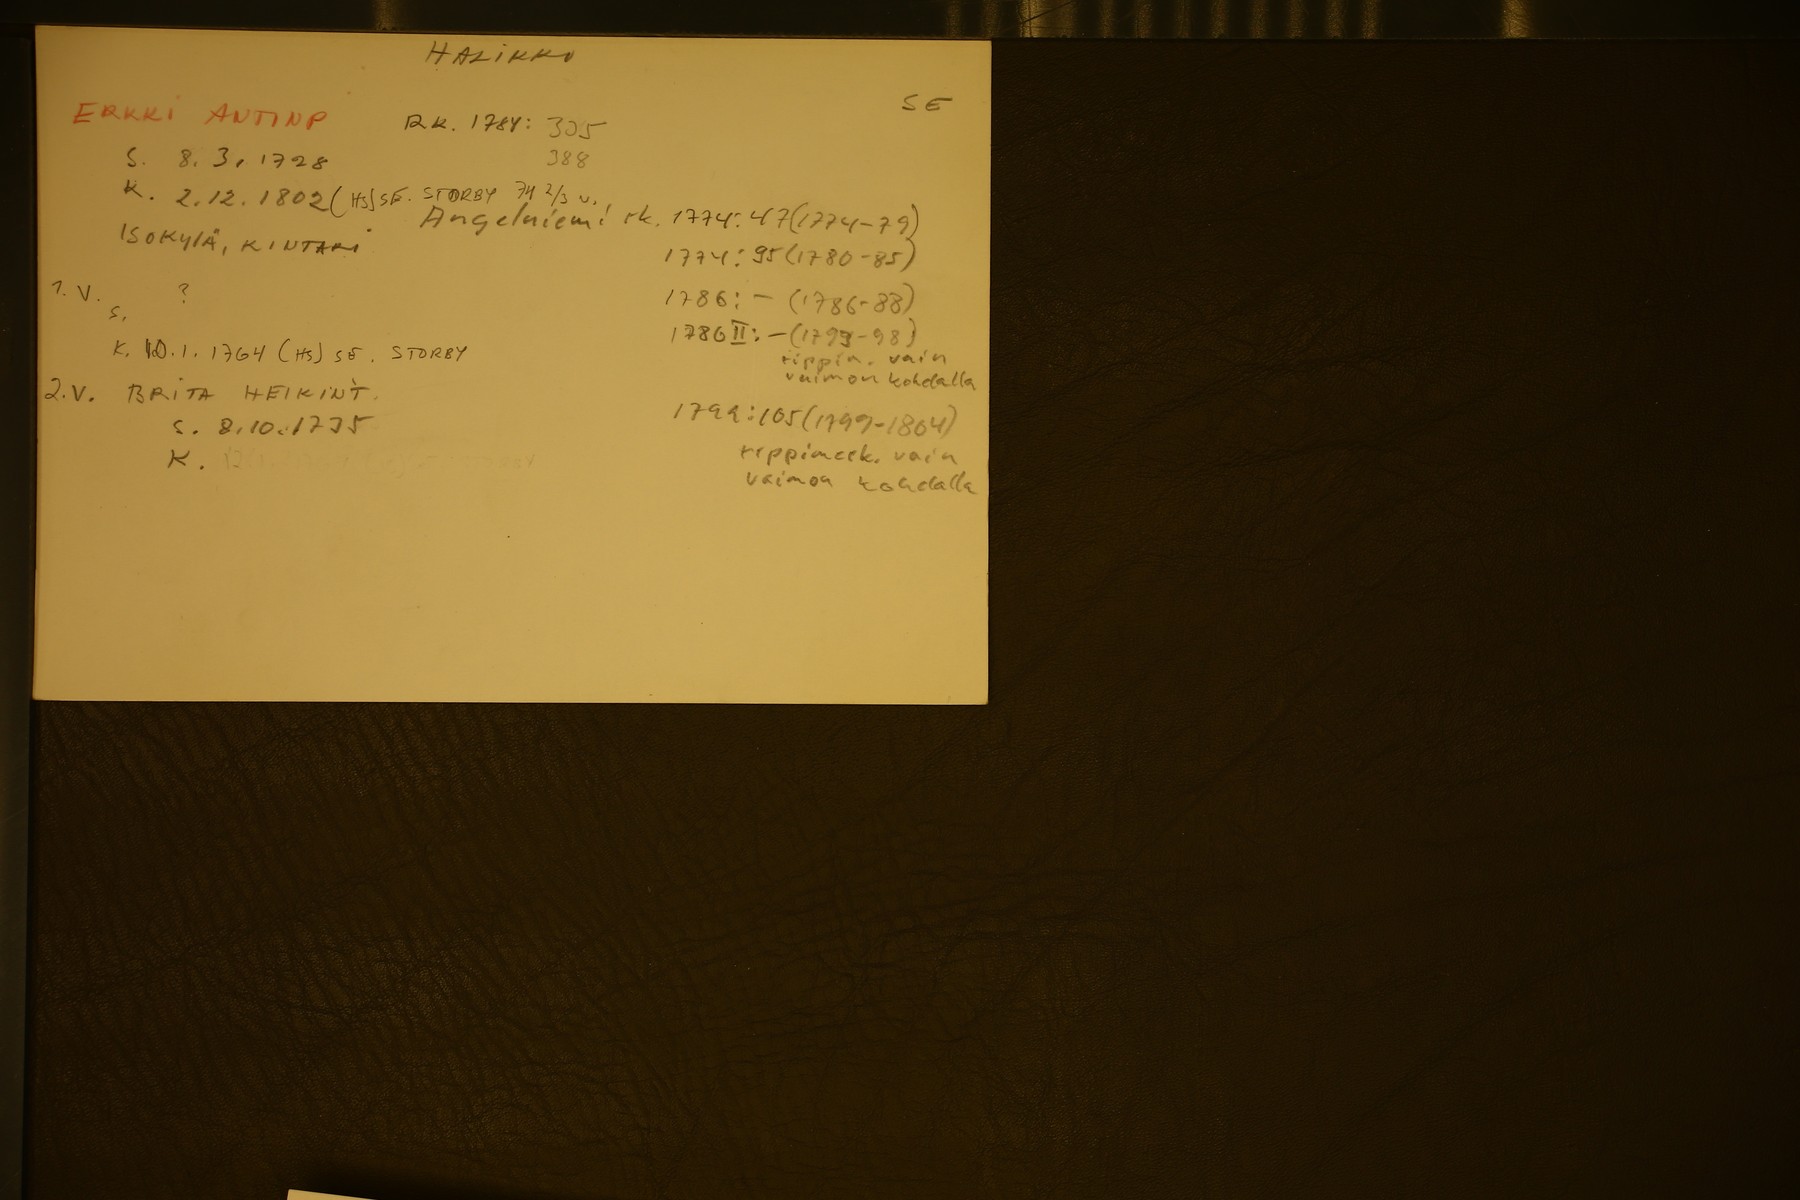 HALIKKO
SE
ERKKI ANTINP RK. 1784: 305
S. 8.3.1728 388
K. 2.12.1802 (HS) SE. STORBY 74 2/3 v.
Angelniemi rk. 1774: 47 (1774-79)
ISOKYLÄ, KINTARI
1774: 95 (1780-85)
1. V. ?
1786: - (1786-88)
S.
1786 II: - (1793-98)
rippim. vain
vaimon kohdalla
K. 10.1.1764 (HS) SE. STORBY
2. V. BRITA HEIKINT.
S. 8.10.1735
1799: 105 (1799-1804)
rippimerk. vain
vaimon kohdalla
K.